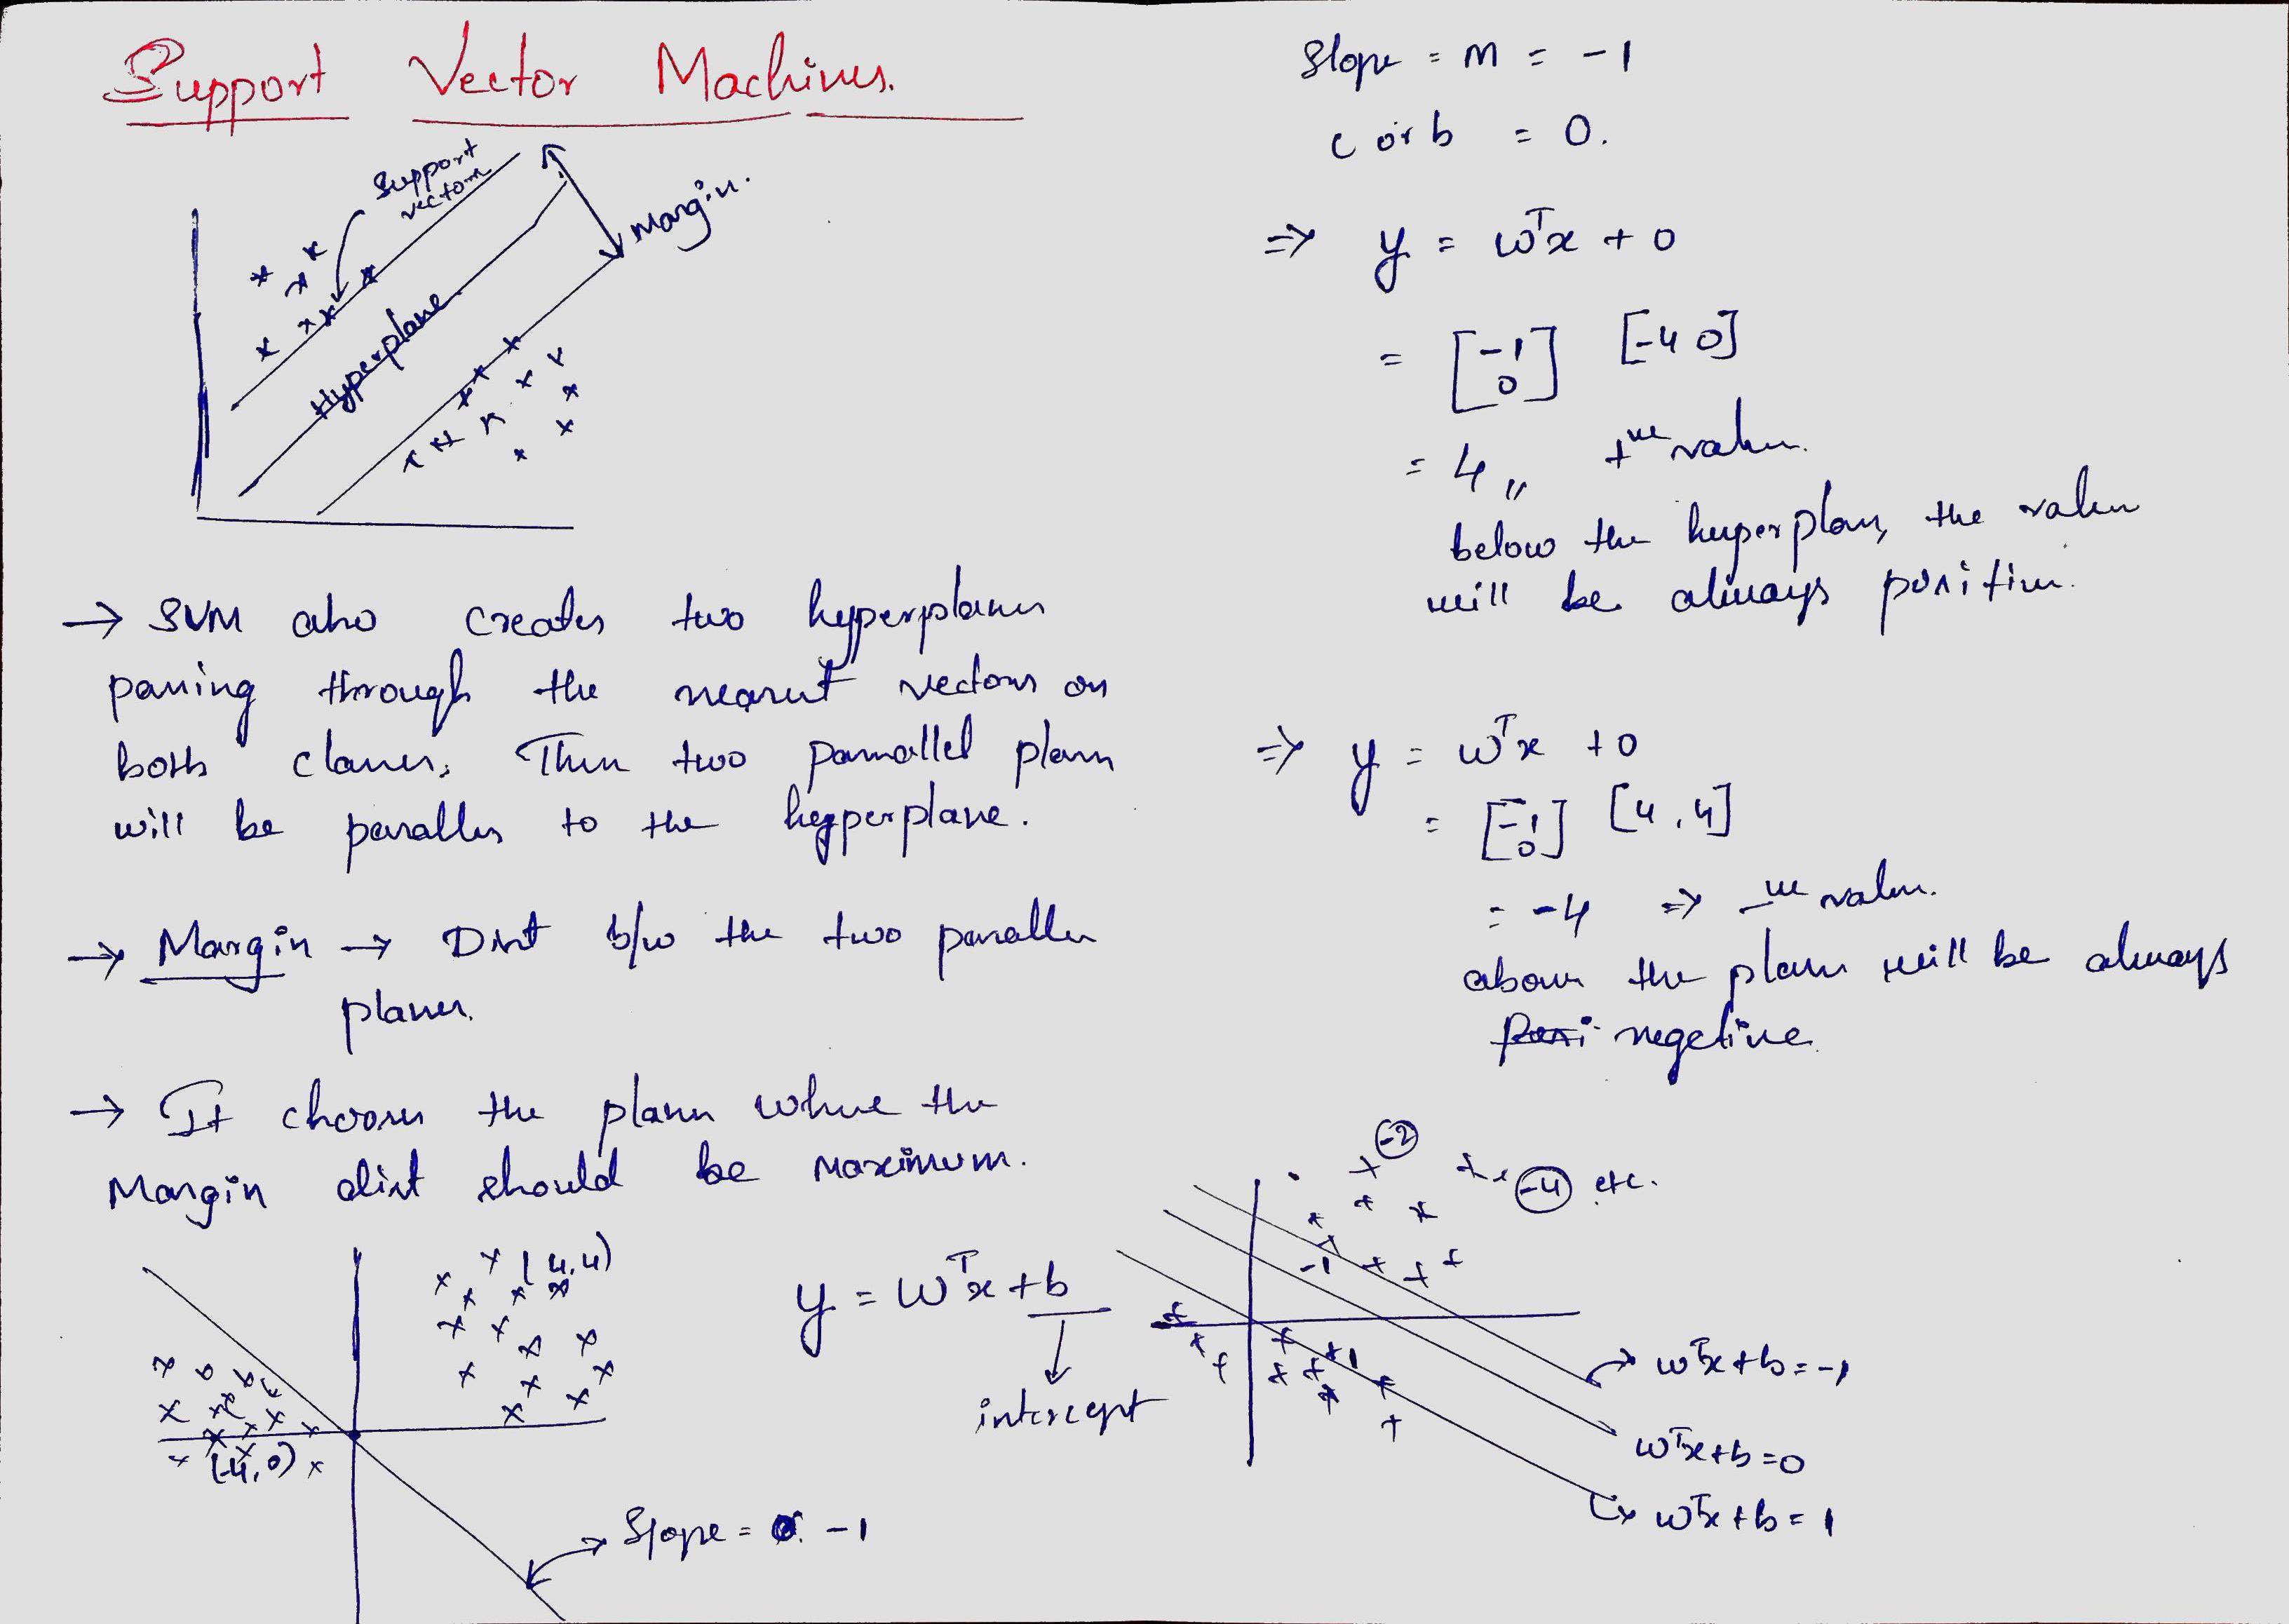 Support Vector Machines.
Support
vectors
Margin.
Hyperplane
→ SVM also creates two hyperplanes
passing through the nearest vectors on
both classes. Then two parallel planes
will be parallel to the hyperplane.
→ Margin → Dist b/w the two parallel
planes.
→ It chooses the plane where the
Margin dist should be maximum.
(4,4)
(-4,0)
Slope = -1
y = wᵀx + b
intercept
Slope = m = -1
c or b = 0.
⇒ y = wᵀx + 0
= [-1 0] [-4 0]
= 4 ,, +ve value.
below the hyperplane, the value
will be always positive.
⇒ y = wᵀx + 0
= [-1 0] [4,4]
= -4 ⇒ -ve value.
above the plane will be always
negetive
-2
-4 etc.
-1
+1
wᵀx+b=-1
wᵀx+b=0
wᵀx+b=1